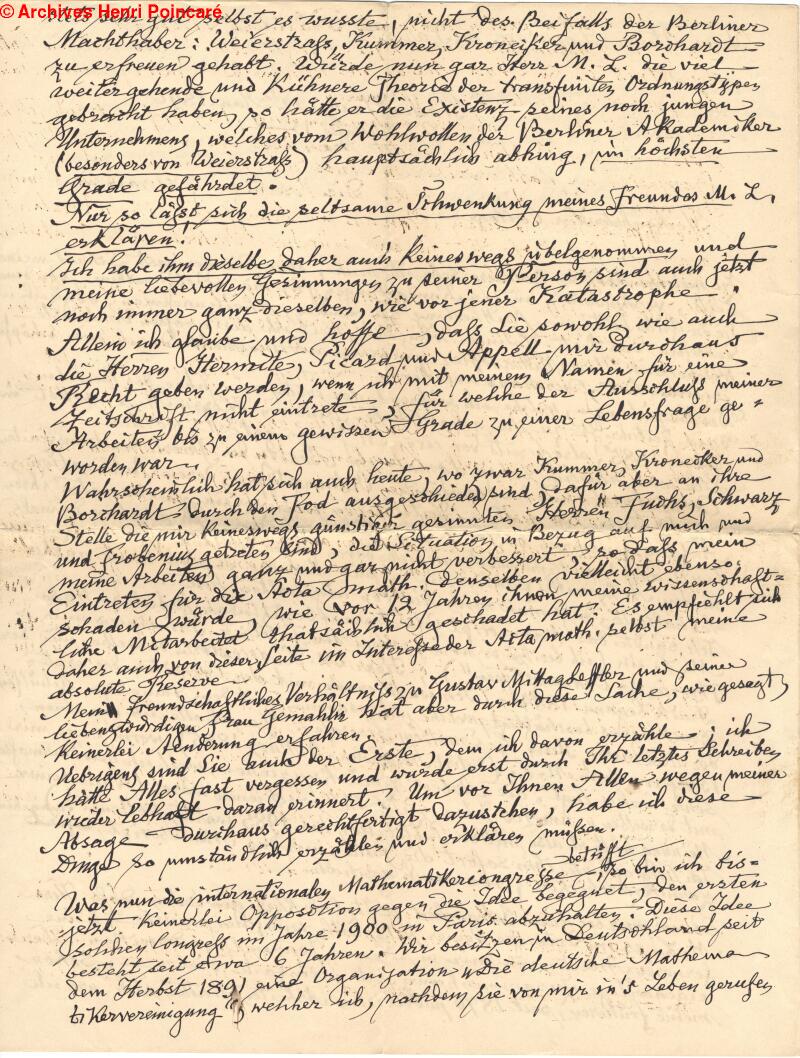 © Archives Henri Poincaré
selbst es wusste, nicht des Beifalls der Berliner
Machthaber: Weierstraſs, Kummer, Kronecker und Borchardt
zu erfreuen gehabt. Würde nun gar Herr M. L. die viel
weitergehende und kühnere Theorie der transfiniten Ordnungstypen
gebracht haben, so hätte er die Existenz seines noch jungen
Unternehmens, welches vom Wohlwollen der Berliner Akademiker
(besonders von Weierstraſs) hauptsächlich abhing, im höchsten
Grade gefährdet.
Nur so läſst sich die seltsame Schwenkung meines Freundes M. L.
erklären!
Ich habe ihm dieselbe daher auch keineswegs übelgenommen und
meine liebevollen Gesinnungen zu seiner Person sind auch jetzt
noch immer ganz dieselben, wie vor jener Katastrophe.
Allein ich glaube und hoffe, daſs Sie sowohl, wie auch
die Herren Hermite, Picard und Appell mir durchaus
Recht geben werden, wenn ich mit meinem Namen für eine
Zeitschrift nicht eintrete, für welche der Ausschluſs meiner
Arbeiten bis zu einem gewissen Grade zu einer Lebensfrage ge=
worden war.
Wahrscheinlich hat sich auch heute, wo zwar Kummer, Kronecker und
Borchardt durch den Tod ausgeschieden sind, dafür aber an ihre
Stelle die mir keineswegs günstiger gesinnten Herren Fuchs, Schwarz
und Frobenius getreten sind, die Situation in Bezug auf mich und
meine Arbeiten ganz und gar nicht verbessert, so daſs mein
Eintreten für die Acta math. denselben vielleicht ebenso
schaden würde, wie vor 12 Jahren ihnen meine wissenschaft=
liche Mitarbeitet thatsächlich geschadet hat. Es empfiehlt sich
daher auch von dieser Seite im Interesse der Acta math. selbst meine
absolute Reserve.
Mein freundschaftliches Verhältniſs zu Gustav Mittagleffler und seine
liebenswürdigen Frau Gemahlin hat aber durch diese Sache, wie gesagt,
keinerlei Aenderung erfahren.
Uebrigens sind Sie auch der Erste, dem ich davon erzähle; ich
hätte Alles fast vergessen und wurde erst durch Ihr letztes Schreiben
wieder lebhaft daran erinnert. Um vor Ihnen Allen wegen meiner
Absage durchaus gerechtfertigt dazustehen, habe ich diese
Dinge so umständlich erzählen und erklären müſsen.
Was nun die internationalen Mathematikercongresse betrifft, so bin ich bis=
jetzt keinerlei Opposition gegen die Idee begegnet, den ersten
solchen Congreſs im Jahre 1900 in Paris abzuhalten. Diese Idee
besteht seit etwa 6 Jahren. Wir besitzen in Deutschland seit
dem Herbst 1891 eine Organisation „Die deutsche Mathema
tikervereinigung“, welcher ich, nachdem sie von mir in's Leben gerufen